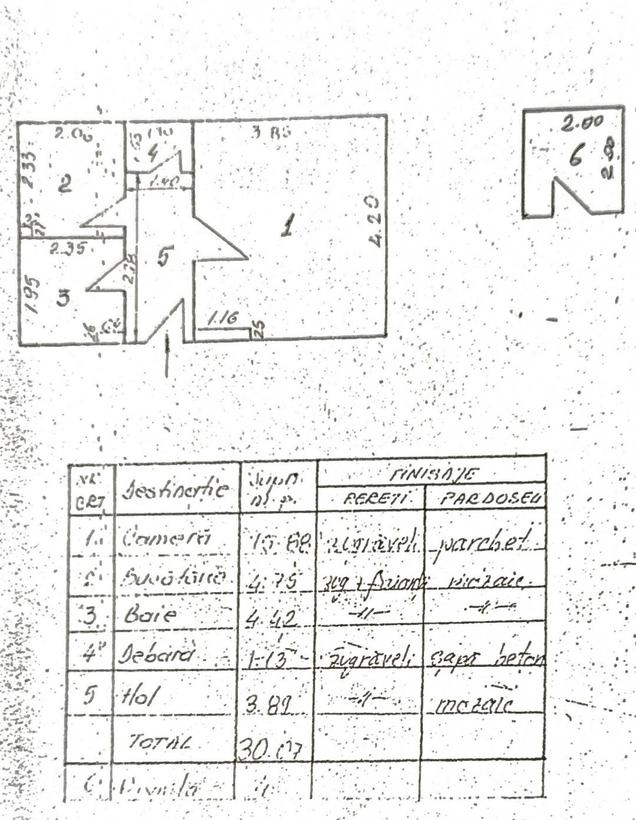 2.06
3.85
2.00
4
6
2.33
2
1.40
1
4.20
2.35
5
2.78
1.95
3
1.16
25
26
NR CRT
Destinatie
Supr. m.p.
FINISAJE
PERETI
PARDOSELI
1. Camera 15.88 zugraveli parchet
2 Bucatarie 4.75 zug + faianta mozaic
3 Baie 4.42 -//- -//-
4 Debara 1.13 zugraveli sapa beton
5 Hol 3.89 -//- mozaic
TOTAL 30.07
6